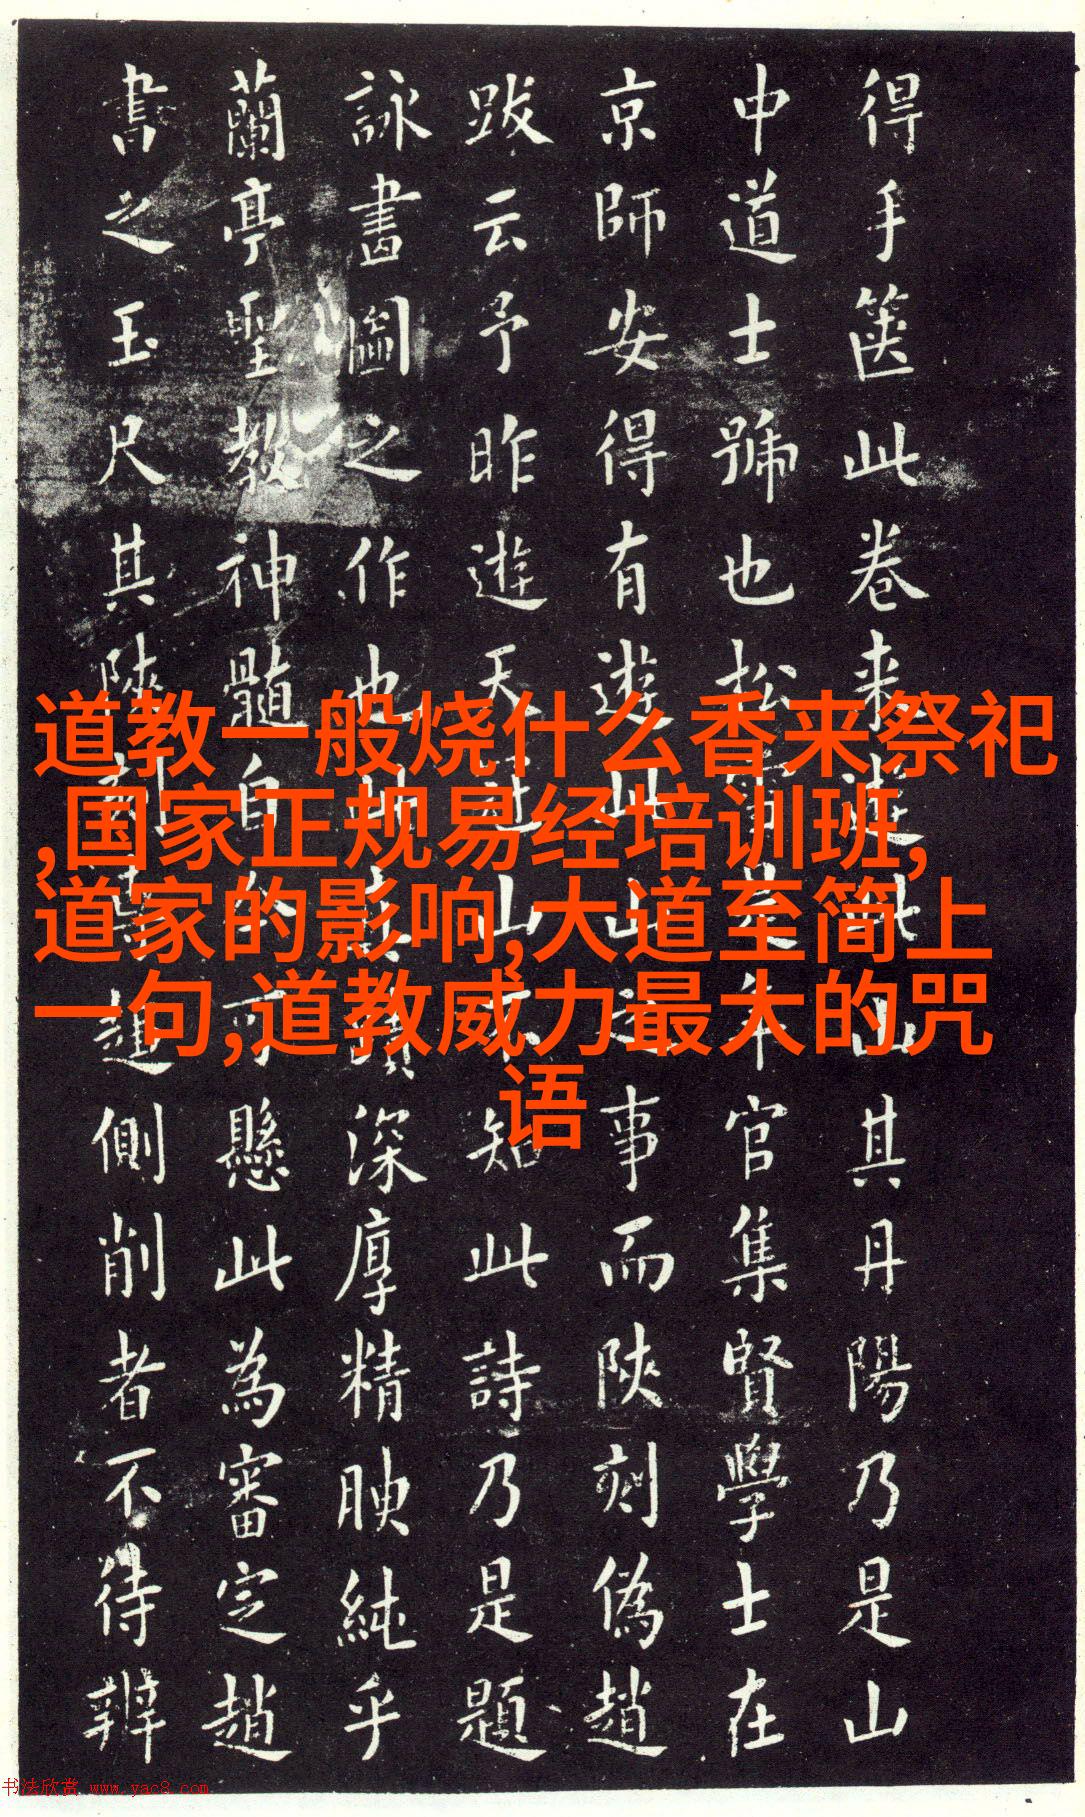 得手篋此卷来遊此山其丹陽乃是山
中道士號也松是年官集賢學士在
京師安得有遊此山之事而陝刻偽趙
跋云予昨遊天冠山不知此詩乃是題
詠畫圖之作也深厚精腴純乎
蘭亭聖教神髓自不可懸此為審定趙
書之玉尺其陝刻趙側削者不待辨
道教一般烧什么香来祭祀
,国家正规易经培训班,
道家的影响,大道至简上
一句,道教威力最大的咒
语
书法欣赏 www.yac8.com